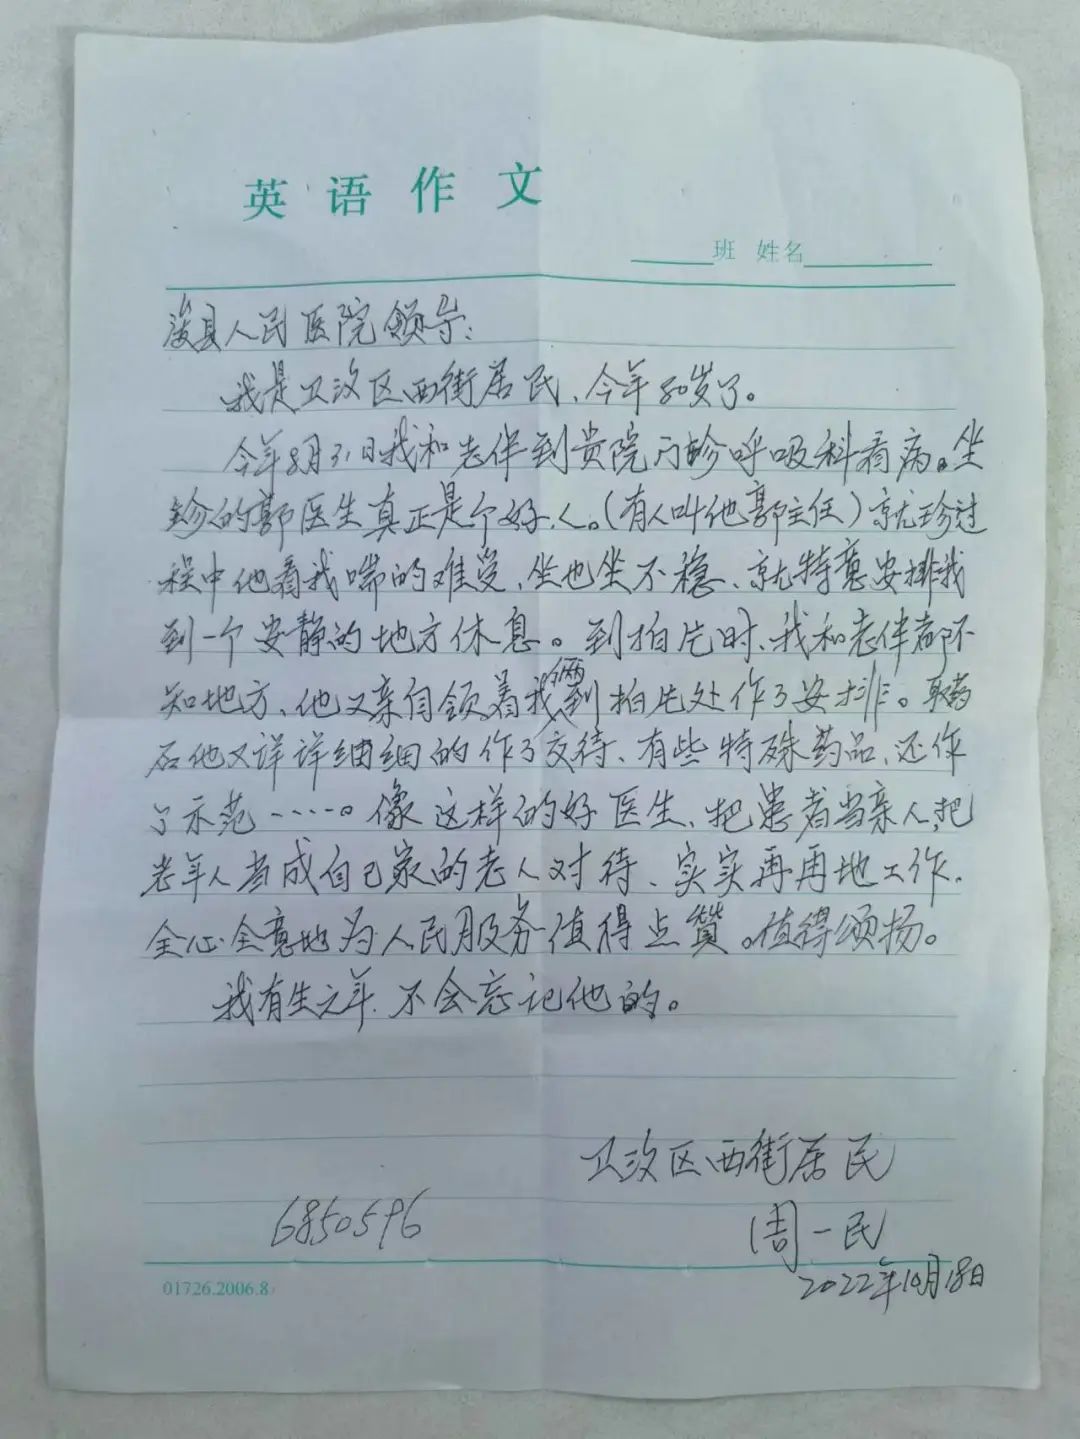 英语作文
班 姓名
浚县人民医院领导：
我是卫滨区西街居民、今年80岁了。
今年8月31日我和老伴到贵院门诊呼吸科看病。坐
诊的郭医生真正是个好人。（有人叫他郭主任）就珍过
程中他看我喘的难受、坐也坐不稳、就特意安排我
到一个安静的地方休息。到拍片时、我和老伴都不
知地方、他又亲自领着我俩到拍片处作了安排。取药
后他又详详细细的作了交待、有些特殊药品、还作
了示范……。像这样的好医生、把患者当亲人，把
老年人当成自己家的老人对待、实实再再地工作.
全心全意地为人民服务值得点赞。值得颂扬。
我有生之年.不会忘记他的。
卫滨区西街居民
6850596
周一民
2022年10月18日
01726.2006.8